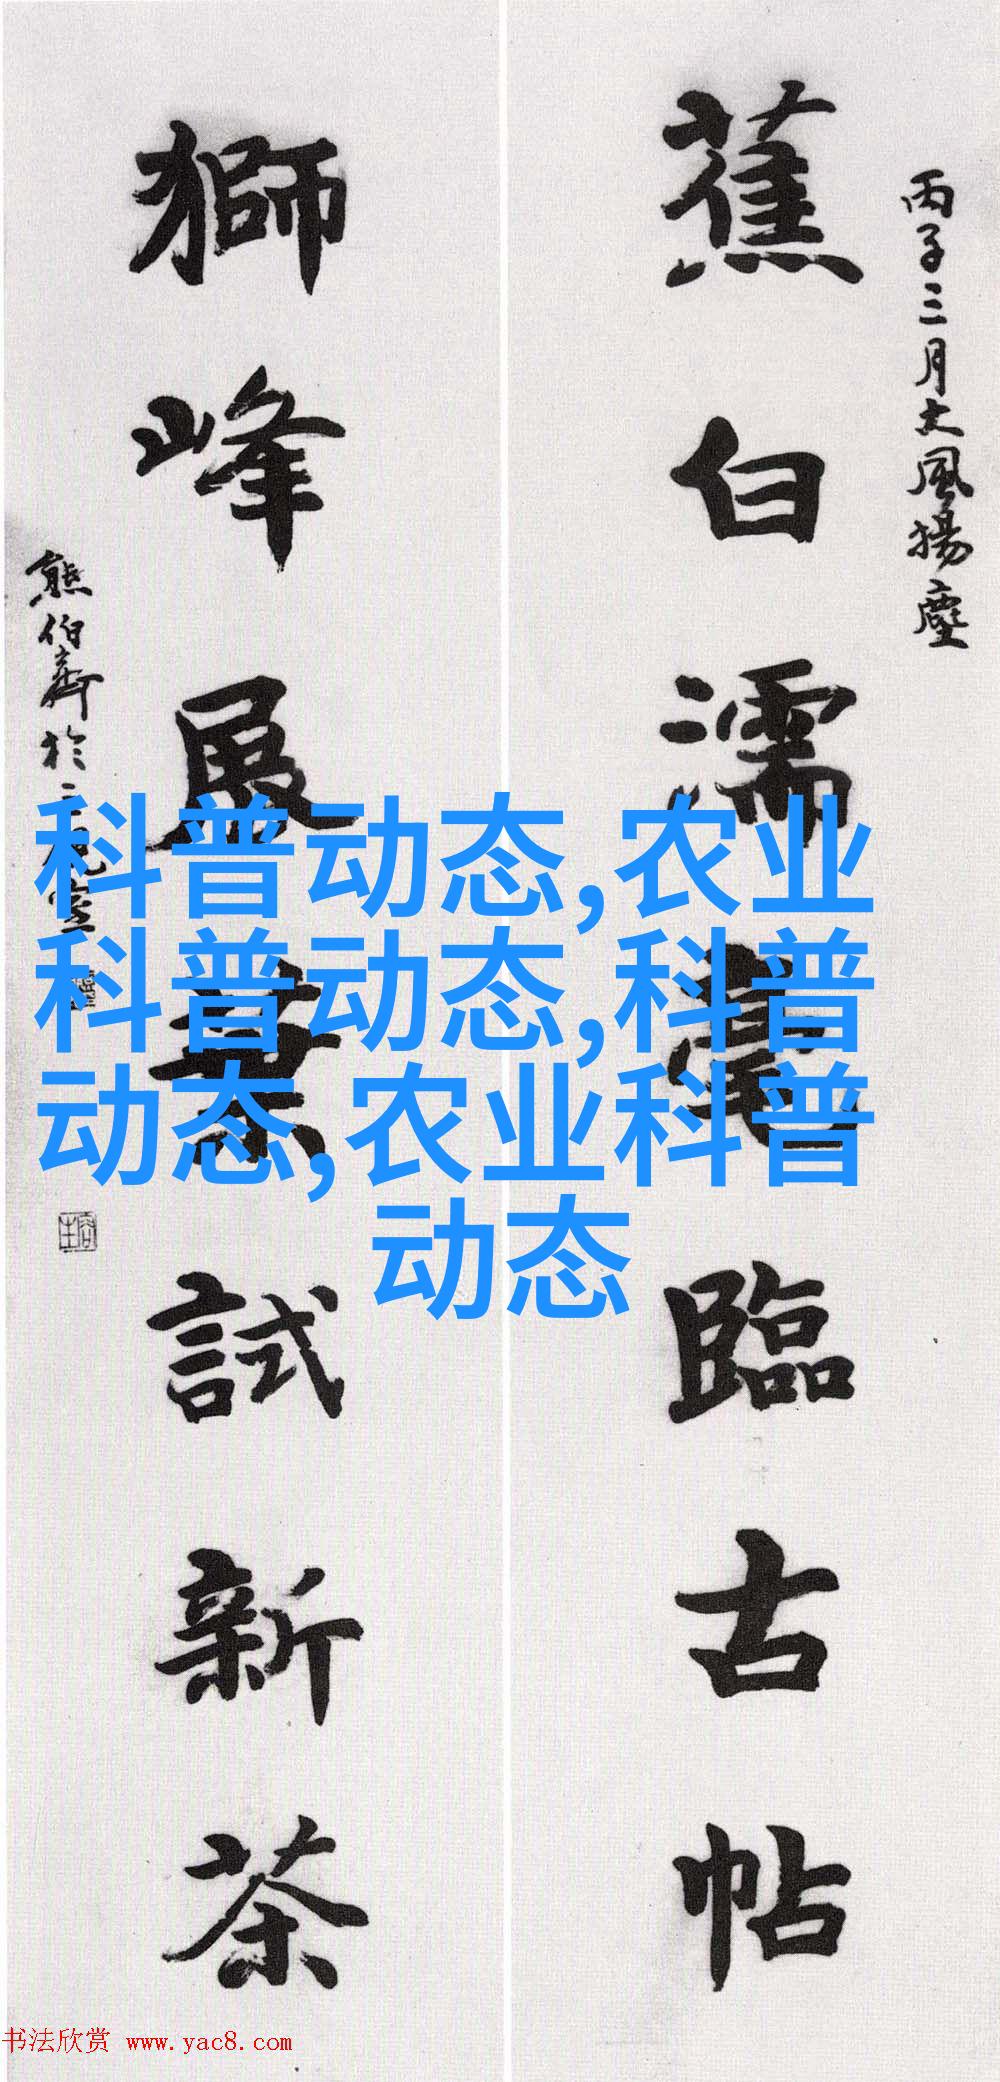 丙子三月大風揚塵
蕉白濡毫臨古帖
獅峰展葉試新茶
熊伯齊於
科普动态,农业
科普动态,科普
动态,农业科普
动态
书法欣赏 www.yac8.com